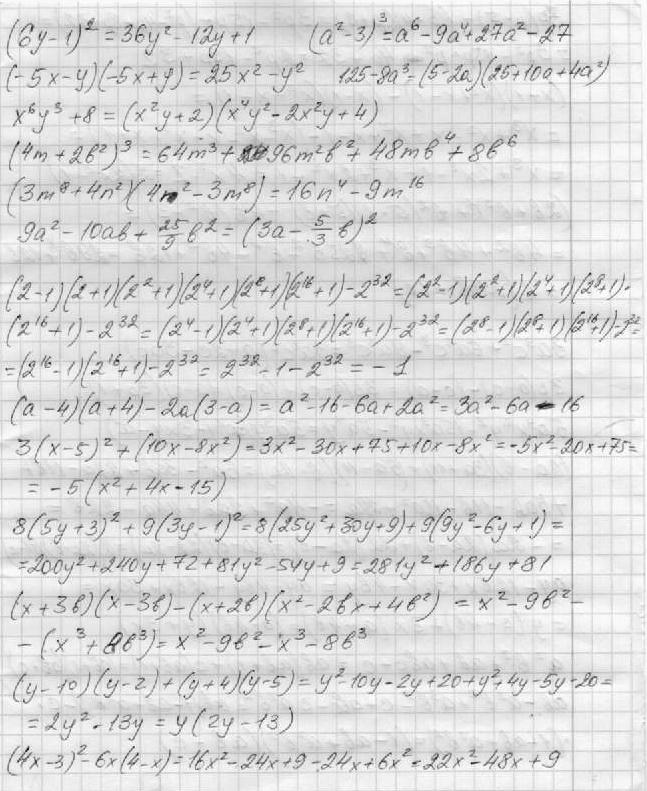 (6y-1)² = 36y² - 12y + 1 (a²-3)³ = a⁶ - 9a⁴ + 27a² - 27
(-5x-y)(-5x+y) = 25x² - y² 125-8a³ = (5-2a)(25+10a+4a²)
x⁶y³ + 8 = (x²y+2)(x⁴y² - 2x²y + 4)
(4m + 2b²)³ = 64m³ + 96m²b² + 48mb⁴ + 8b⁶
(3m⁸+4n²)(4n² - 3m⁸) = 16n⁴ - 9m¹⁶
9a² - 10ab + 25/9 b² = (3a - 5/3 b)²
(2-1)(2+1)(2²+1)(2⁴+1)(2⁸+1)(2¹⁶+1) - 2³² = (2²-1)(2²+1)(2⁴+1)(2⁸+1)·
(2¹⁶+1) - 2³² = (2⁴-1)(2⁴+1)(2⁸+1)(2¹⁶+1) - 2³² = (2⁸-1)(2⁸+1)(2¹⁶+1) - 2³² =
= (2¹⁶-1)(2¹⁶+1) - 2³² = 2³² - 1 - 2³² = -1
(a-4)(a+4) - 2a(3-a) = a² - 16 - 6a + 2a² = 3a² - 6a - 16
3(x-5)² + (10x - 8x²) = 3x² - 30x + 75 + 10x - 8x² = -5x² - 20x + 75 =
= -5(x² + 4x - 15)
8(5y+3)² + 9(3y-1)² = 8(25y² + 30y + 9) + 9(9y² - 6y + 1) =
= 200y² + 240y + 72 + 81y² - 54y + 9 = 281y² + 186y + 81
(x+3b)(x-3b) - (x+2b)(x² - 2bx + 4b²) = x² - 9b² -
- (x³ + 8b³) = x² - 9b² - x³ - 8b³
(y-10)(y-2) + (y+4)(y-5) = y² - 10y - 2y + 20 + y² + 4y - 5y - 20 =
= 2y² - 13y = y(2y-13)
(4x-3)² - 6x(4-x) = 16x² - 24x + 9 - 24x + 6x² = 22x² - 48x + 9